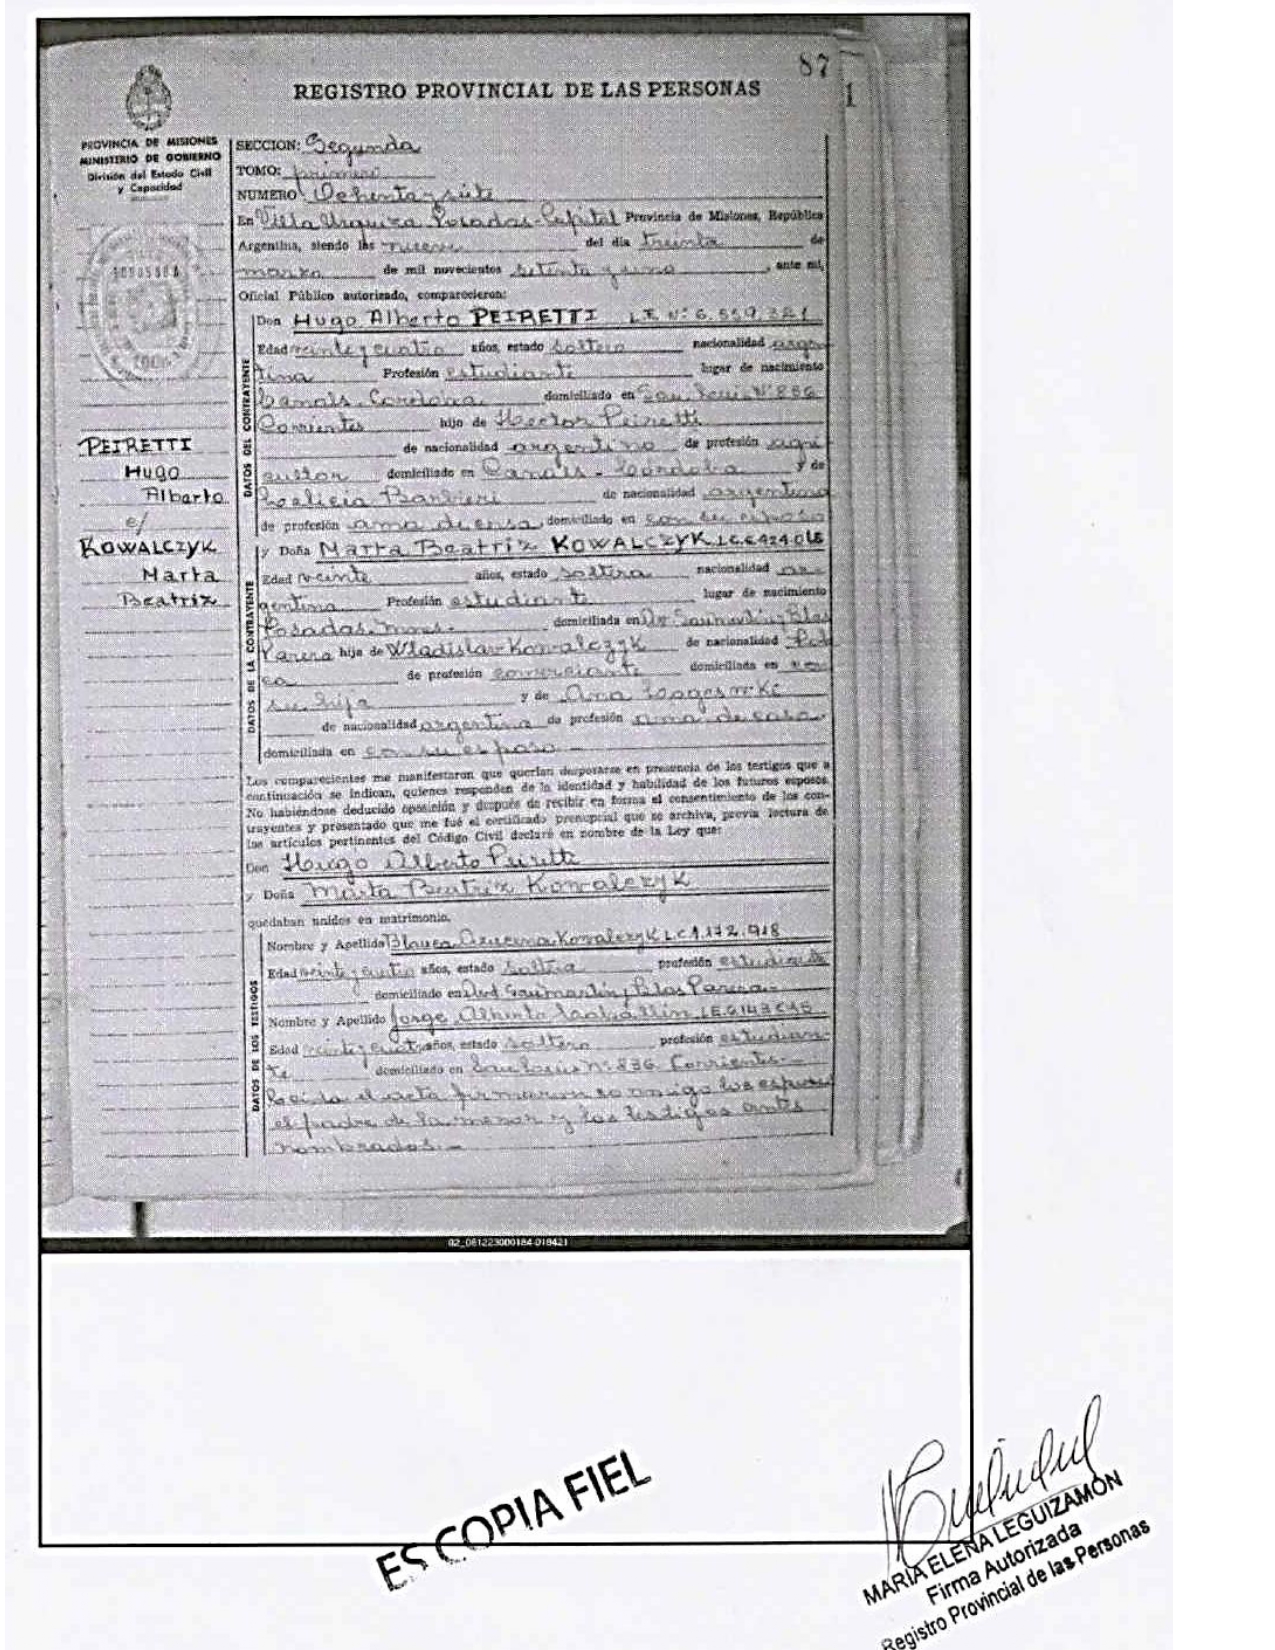 87
1
REGISTRO PROVINCIAL DE LAS PERSONAS
PROVINCIA DE MISIONES
MINISTERIO DE GOBIERNO
División del Estado Civil
y Capacidad
SECCION: Segunda
TOMO: primero
NUMERO Ochenta y siete
En Villa Urquiza Posadas Capital Provincia de Misiones, República
Argentina, siendo las nueve del día treinta de
marzo de mil novecientos setenta y uno, ante mí,
Oficial Público autorizado, comparecieron:
DATOS DEL CONTRAYENTE
Don Hugo Alberto PEIRETTI L.E. Nº 6.559.321
Edad veinte y cuatro años, estado soltero nacionalidad argen
tina Profesión estudiante lugar de nacimiento
Canals. Cordoba domiciliado en San Luis Nº 836
Corrientes hijo de Hector Peiretti
de nacionalidad argentino de profesión agri
cultor domiciliado en Canals - Cordoba y de
Barbieri de nacionalidad argentina
de profesión ama de casa domiciliado en con su esposo
PEIRETTI
Hugo
Alberto
c/
KOWALCZYK
Marta
Beatriz
DATOS DE LA CONTRAYENTE
y Doña Marta Beatriz KOWALCZYK L.C.
Edad veinte años, estado soltera nacionalidad ar-
gentina Profesión estudiante lugar de nacimiento
Posadas. Mnes. domiciliada en Av. Sanmartín y Blas
Parera hijo de Wladislao Kowalczyk de nacionalidad Pola
ca de profesión comerciante domiciliada en con
su hija y de Ana
de nacionalidad argentina de profesión ama de casa.
domiciliada en con su esposo
Los comparecientes me manifestaron que querían desposarse en presencia de los testigos que a
continuación se indican, quienes responden de la identidad y habilidad de los futuros esposos.
No habiéndose deducido oposición y después de recibir en forma el consentimiento de los con-
trayentes y presentado que me fué el certificado prenupcial que se archiva, previa lectura de
los artículos pertinentes del Código Civil declaré en nombre de la Ley que:
Don Hugo Alberto Peiretti
y Doña Marta Beatriz Kowalczyk
quedaban unidos en matrimonio.
DATOS DE LOS TESTIGOS
Nombre y Apellido Blanca Azucena Kowalczyk L.C 1.172.918
Edad veinte y cuatro años, estado soltera profesión estudiante
domiciliado en Avd Sanmartín y Blas Parera
Nombre y Apellido Jorge Alberto
Edad veinte y cuatro años, estado soltero profesión estudian-
te domiciliado en San Luis Nº 836 Corrientes.
Leída el acta firmaron conmigo los esposos
el padre de la menor y los testigos antes
nombrados.
02_081223000184-018421
ES COPIA FIEL
MARIA ELENA LEGUIZAMÓN
Firma Autorizada
Registro Provincial de las Personas